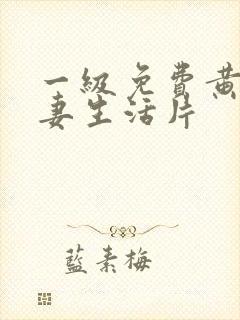 一級免費黄
妻生活片
藍素梅